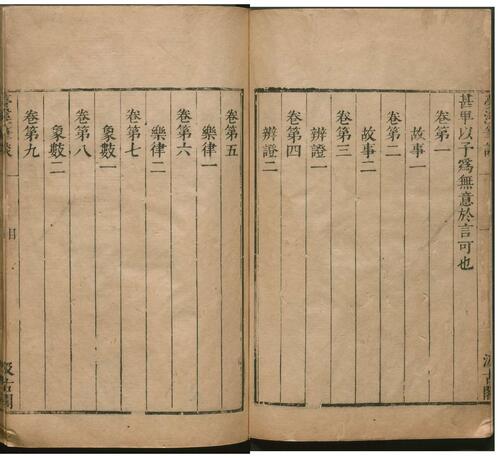 甚卑以予為無意於言可也
卷第一
故事一
卷第二
故事二
卷第三
辨證一
卷第四
辨證二
卷第五
樂律一
卷第六
樂律二
卷第七
象數一
卷第八
象數二
卷第九
目
汲古閣